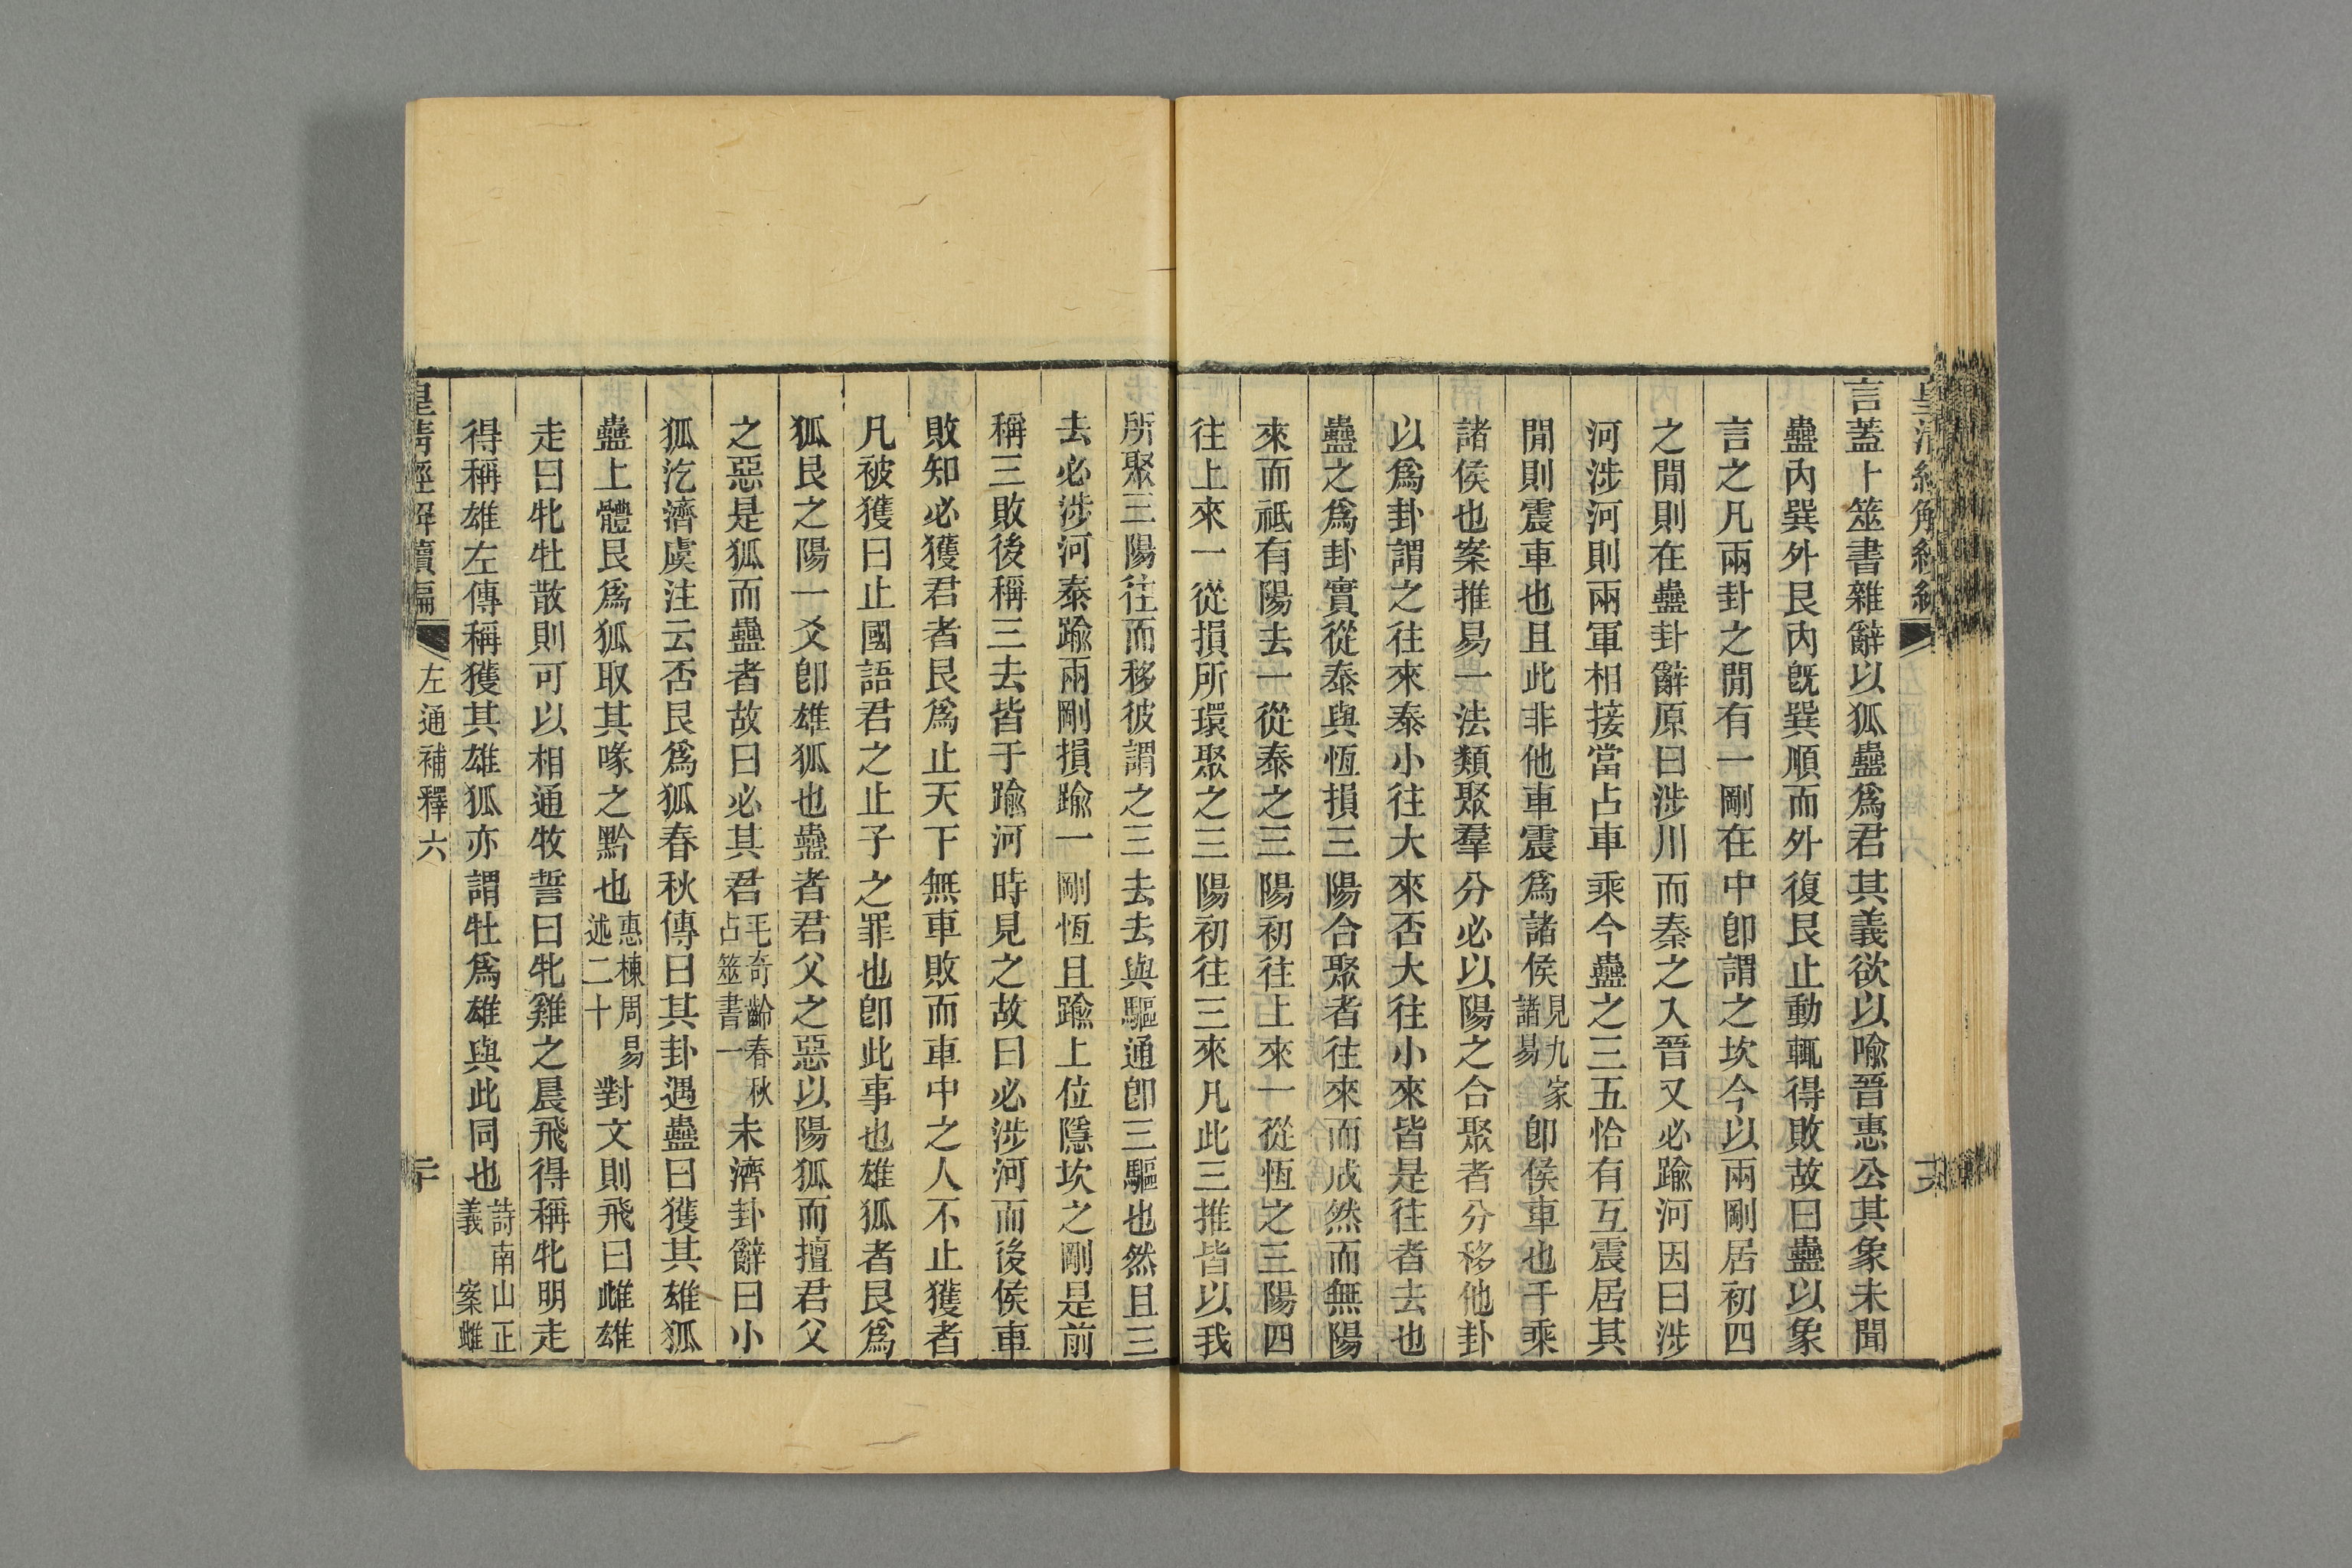 言蓋卜筮書雜辭以狐蠱爲君其義欲以喻晉惠公其象未聞
蠱內巽外艮內旣巽順而外復艮止動輒得敗故曰蠱以象
言之凡兩卦之閒有一剛在中卽謂之坎今以兩剛居初四
之閒則在蠱卦辭原曰涉川而秦之入晉又必踰河因曰涉
河涉河則兩軍相接當占車乘今蠱之三五恰有互震居其
閒則震車也且此非他車震爲諸侯見九家諸易卽侯車也千乘
諸侯也案推易一法類聚羣分必以陽之合聚者分移他卦
以爲卦謂之往來泰小往大來否大往小來皆是往者去也
蠱之爲卦實從泰與恆損三陽合聚者往來而成然而無陽
來而祇有陽去一從泰之三陽初往上來一從恆之三陽四
往上來一從損所環聚之三陽初往三來凡此三推皆以我
所聚三陽往而移彼謂之三去去與驅通卽三驅也然且三
去必涉河泰踰兩剛損踰一剛恆且踰上位隱坎之剛是前
稱三敗後稱三去皆于踰河時見之故曰必涉河而後侯車
敗知必獲君者艮爲止天下無車敗而車中之人不止獲者
凡被獲曰止國語君之止子之罪也卽此事也雄狐者艮爲
狐艮之陽一爻卽雄狐也蠱者君父之惡以陽狐而擅君父
之惡是狐而蠱者故曰必其君毛奇齡春秋占筮書一未濟卦辭曰小
狐汔濟虞注云否艮爲狐春秋傳曰其卦遇蠱曰獲其雄狐
蠱上體艮爲狐取其喙之黔也惠棟周易述二十對文則飛曰雌雄
走曰牝牡散則可以相通牧誓曰牝雞之晨飛得稱牝明走
得稱雄左傳稱獲其雄狐亦謂牡爲雄與此同也詩南山正義案雌
皇清經解續編
左通補釋六